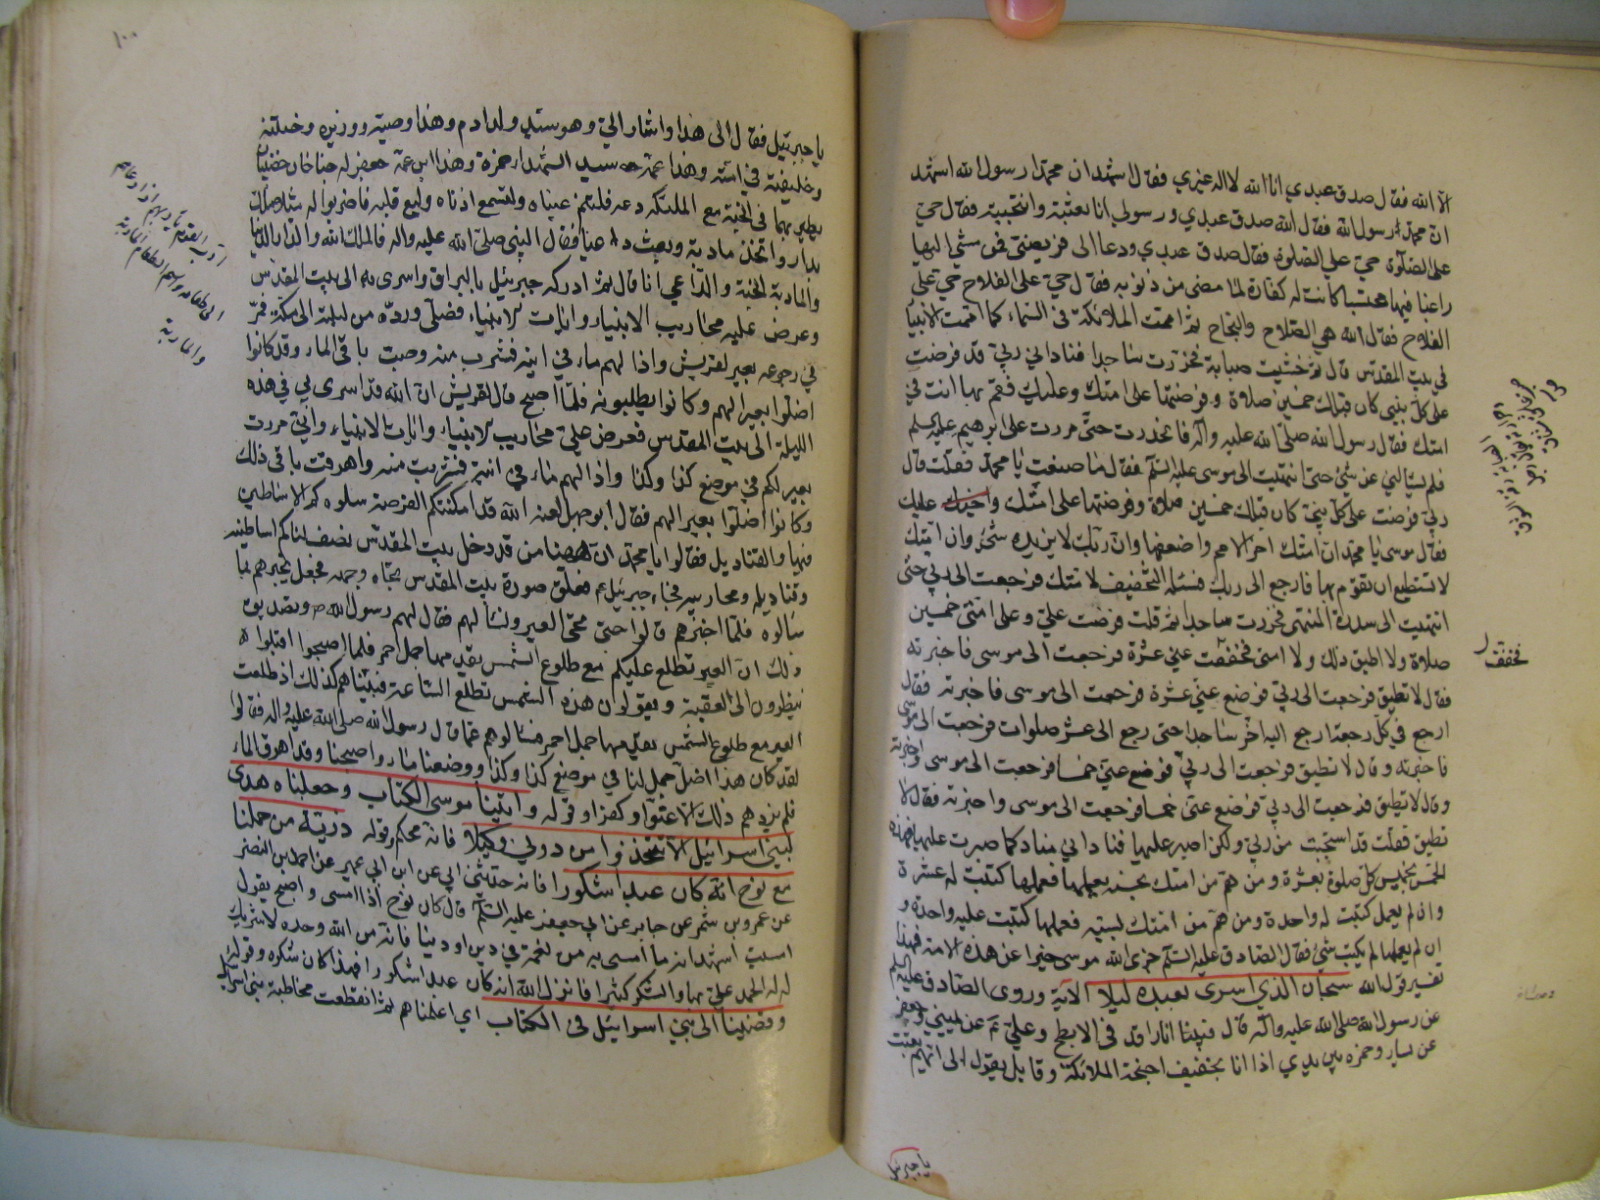 الا الله فقال صدق عبدي انا الله لا اله غيري فقال اشهد ان محمدا رسول الله اشهد
ان محمدا رسول الله فقال الله صدق عبدي ورسولي انا بعثته وانتجبته فقال حي
على الصلوة حي على الصلوة فقال صدق عبدي ودعا الى فريضتي فمن مشى اليها
راغبا فيها محتسبا كانت له كفارة لما مضى من ذنوبه فقال حي على الفلاح حي على
الفلاح فقال الله هي الصلاح والنجاح ثم اممت الملائكة في السماء كما اممت الانبياء
في بيت المقدس قال ثم غشيت صبابة فخررت ساجدا فناداني ربي قد فرضت
على كل نبي كان قبلك خمسين صلاة وفرضتها على امتك وعليك فقم بها انت في
امتك فقال رسول الله صلى الله عليه وآله فانحدرت حتى مررت على ابرهيم عليه السلم
فلم يسألني عن شئ حتى انتهيت الى موسى عليه السلم فقال ما صنعت يا محمد فقلت قال
ربي فرضت على كل نبي كان قبلك خمسين صلاة وفرضتها على امتك وعليك
فقال موسى يا محمد ان امتك اخر الامم واضعفها وان ربك لا يزيده شئ وان امتك
لا تستطيع ان تقوم بها فارجع الى ربك فسئله التخفيف لامتك فرجعت الى ربي حتى
انتهيت الى سدرة المنتهى فخررت ساجدا ثم قلت فرضت علي وعلى امتي خمسين
صلاة ولا اطيق ذلك ولا امتي فخففت عني عشرة فرجعت الى موسى فاخبرته
فقال لا تطيق فرجعت الى ربي فوضع عني عشرة فرجعت الى موسى فاخبرته فقال
ارجع في كل رجعة ارجع اليه اخر ساجدا حتى رجع الى عشر صلوات فرجعت الى موسى
فاخبرته وقال لا تطيق فرجعت الى ربي فوضع عني خمسا فرجعت الى موسى واخبرته
وقال لا تطيق فرجعت الى ربي فوضع عني خمسا فرجعت الى موسى واخبرته فقال لا
تطيق فقلت قد استحييت من ربي ولكن اصبر عليها فناداني مناد كما صبرت عليها فهذه
الخمس بخمسين كل صلوة بعشرة ومن هم من امتك بحسنة يعملها فعملها كتبت له عشرة
وان لم يعمل كتبت له واحدة ومن هم من امتك بسيئة فعملها كتبت عليه واحدة و
ان لم يعملها لم يكتب شئ فقال الصادق عليه السلم جزى الله موسى خيرا عن هذه الامة فهذا
تفسير قول الله سبحان الذي اسرى بعبده ليلا الآية وروى الصادق عليه السلم
عن رسول الله صلى الله عليه وآله قال بينا انا راقد في الابطح وعلي ع عن يميني وجعفر
عن يساري وحمزه بين يدي اذا انا بخفيف اجنحة الملائكة وقايل يقول الى ايهم بعثت
يا جبرئيل
فخفف
يا جبرئيل فقال الى هذا واشار الي وهو سيد ولد ادم وهذا وصيه ووزيره وختنه
وخليفته في امته وهذا عمه سيد الشهداء حمزة وهذا ابن عمه جعفر له جناحان خضيبان
يطير بهما في الجنة مع الملئكة دعه فلتنم عيناه ولتسمع اذناه وليع قلبه فاضربوا له مثلا ملك
بنى دارا واتخذ مادبة وبعث داعيا فقال النبي صلى الله عليه واله فالملك الله والدار الدنيا
والمادبة الجنة والداعي انا قال ثم ادركه جبرئيل بالبراق واسرى به الى بيت المقدس
وعرض عليه محاريب الانبياء وايات الانبياء فصلى ورده من ليلته الى مكة فمر
في رجوعه بعير لقريش واذا لهم ماء في انية فشرب منه وصب باقي الماء وقد كانوا
اضلوا بعيرا لهم وكانوا يطلبونه فلما اصبح قال لقريش ان الله قد اسرى بي في هذه
الليلة الى بيت المقدس فعرض علي محاريب الانبياء وايات الانبياء واني مررت
بعير لكم في موضع كذا وكذا واذا لهم ماء في انية فشربت منه واهرقت باقي ذلك
وكانوا اضلوا بعيرا لهم فقال ابو جهل لعنه الله قد امكنتكم الفرصة سلوه كم الاساطين
فيها والقناديل فقالوا يا محمد ان ههنا من قد دخل بيت المقدس فصف لنا كم اساطينه
وقناديله ومحاريبه فجاء جبرئيل ع فعلق صورة بيت المقدس تجاه وجهه فجعل يخبرهم بما
سالوه فلما اخبرهم قالوا حتى تجئ العير ونسألهم فقال لهم رسول الله ص وتصديق
ذلك ان العير تطلع عليكم مع طلوع الشمس يقدمها جمل احمر فلما اصبحوا اقبلوا
ينظرون الى العقبة ويقولون هذه الشمس تطلع الساعة فبينا هم كذلك اذ طلعت
العير مع طلوع الشمس يقدمها جمل احمر فسالوهم عما قال رسول الله صلى الله عليه واله فقالوا
لقد كان هذا اضل جمل لنا في موضع كذا وكذا ووضعنا ماء واصبحنا وقد اهرق الماء
فلم يزدهم ذلك الا عتوا وكفرا وقوله واتينا موسى الكتاب وجعلناه هدى
لبني اسرائيل الا تتخذوا من دوني وكيلا فانه محكم وقوله ذرية من حملنا
مع نوح انه كان عبدا شكورا فانه حدثني ابي عن ابن ابي عمير عن احمد بن النضر
عن عمرو بن شمر عن جابر عن ابي جعفر عليه السلم قال كان نوح اذا امسى واصبح يقول
امسيت اشهد انه ما امسى بي من نعمة في دين او دنيا فانه من الله وحده لا شريك
له له الحمد علي بها والشكر كثيرا فانزل الله انه كان عبدا شكورا فهذا كان شكره وقوله
وقضينا الى بني اسرائيل في الكتاب اي اعلمناهم ثم انقطعت مخاطبة بني اسرائيل